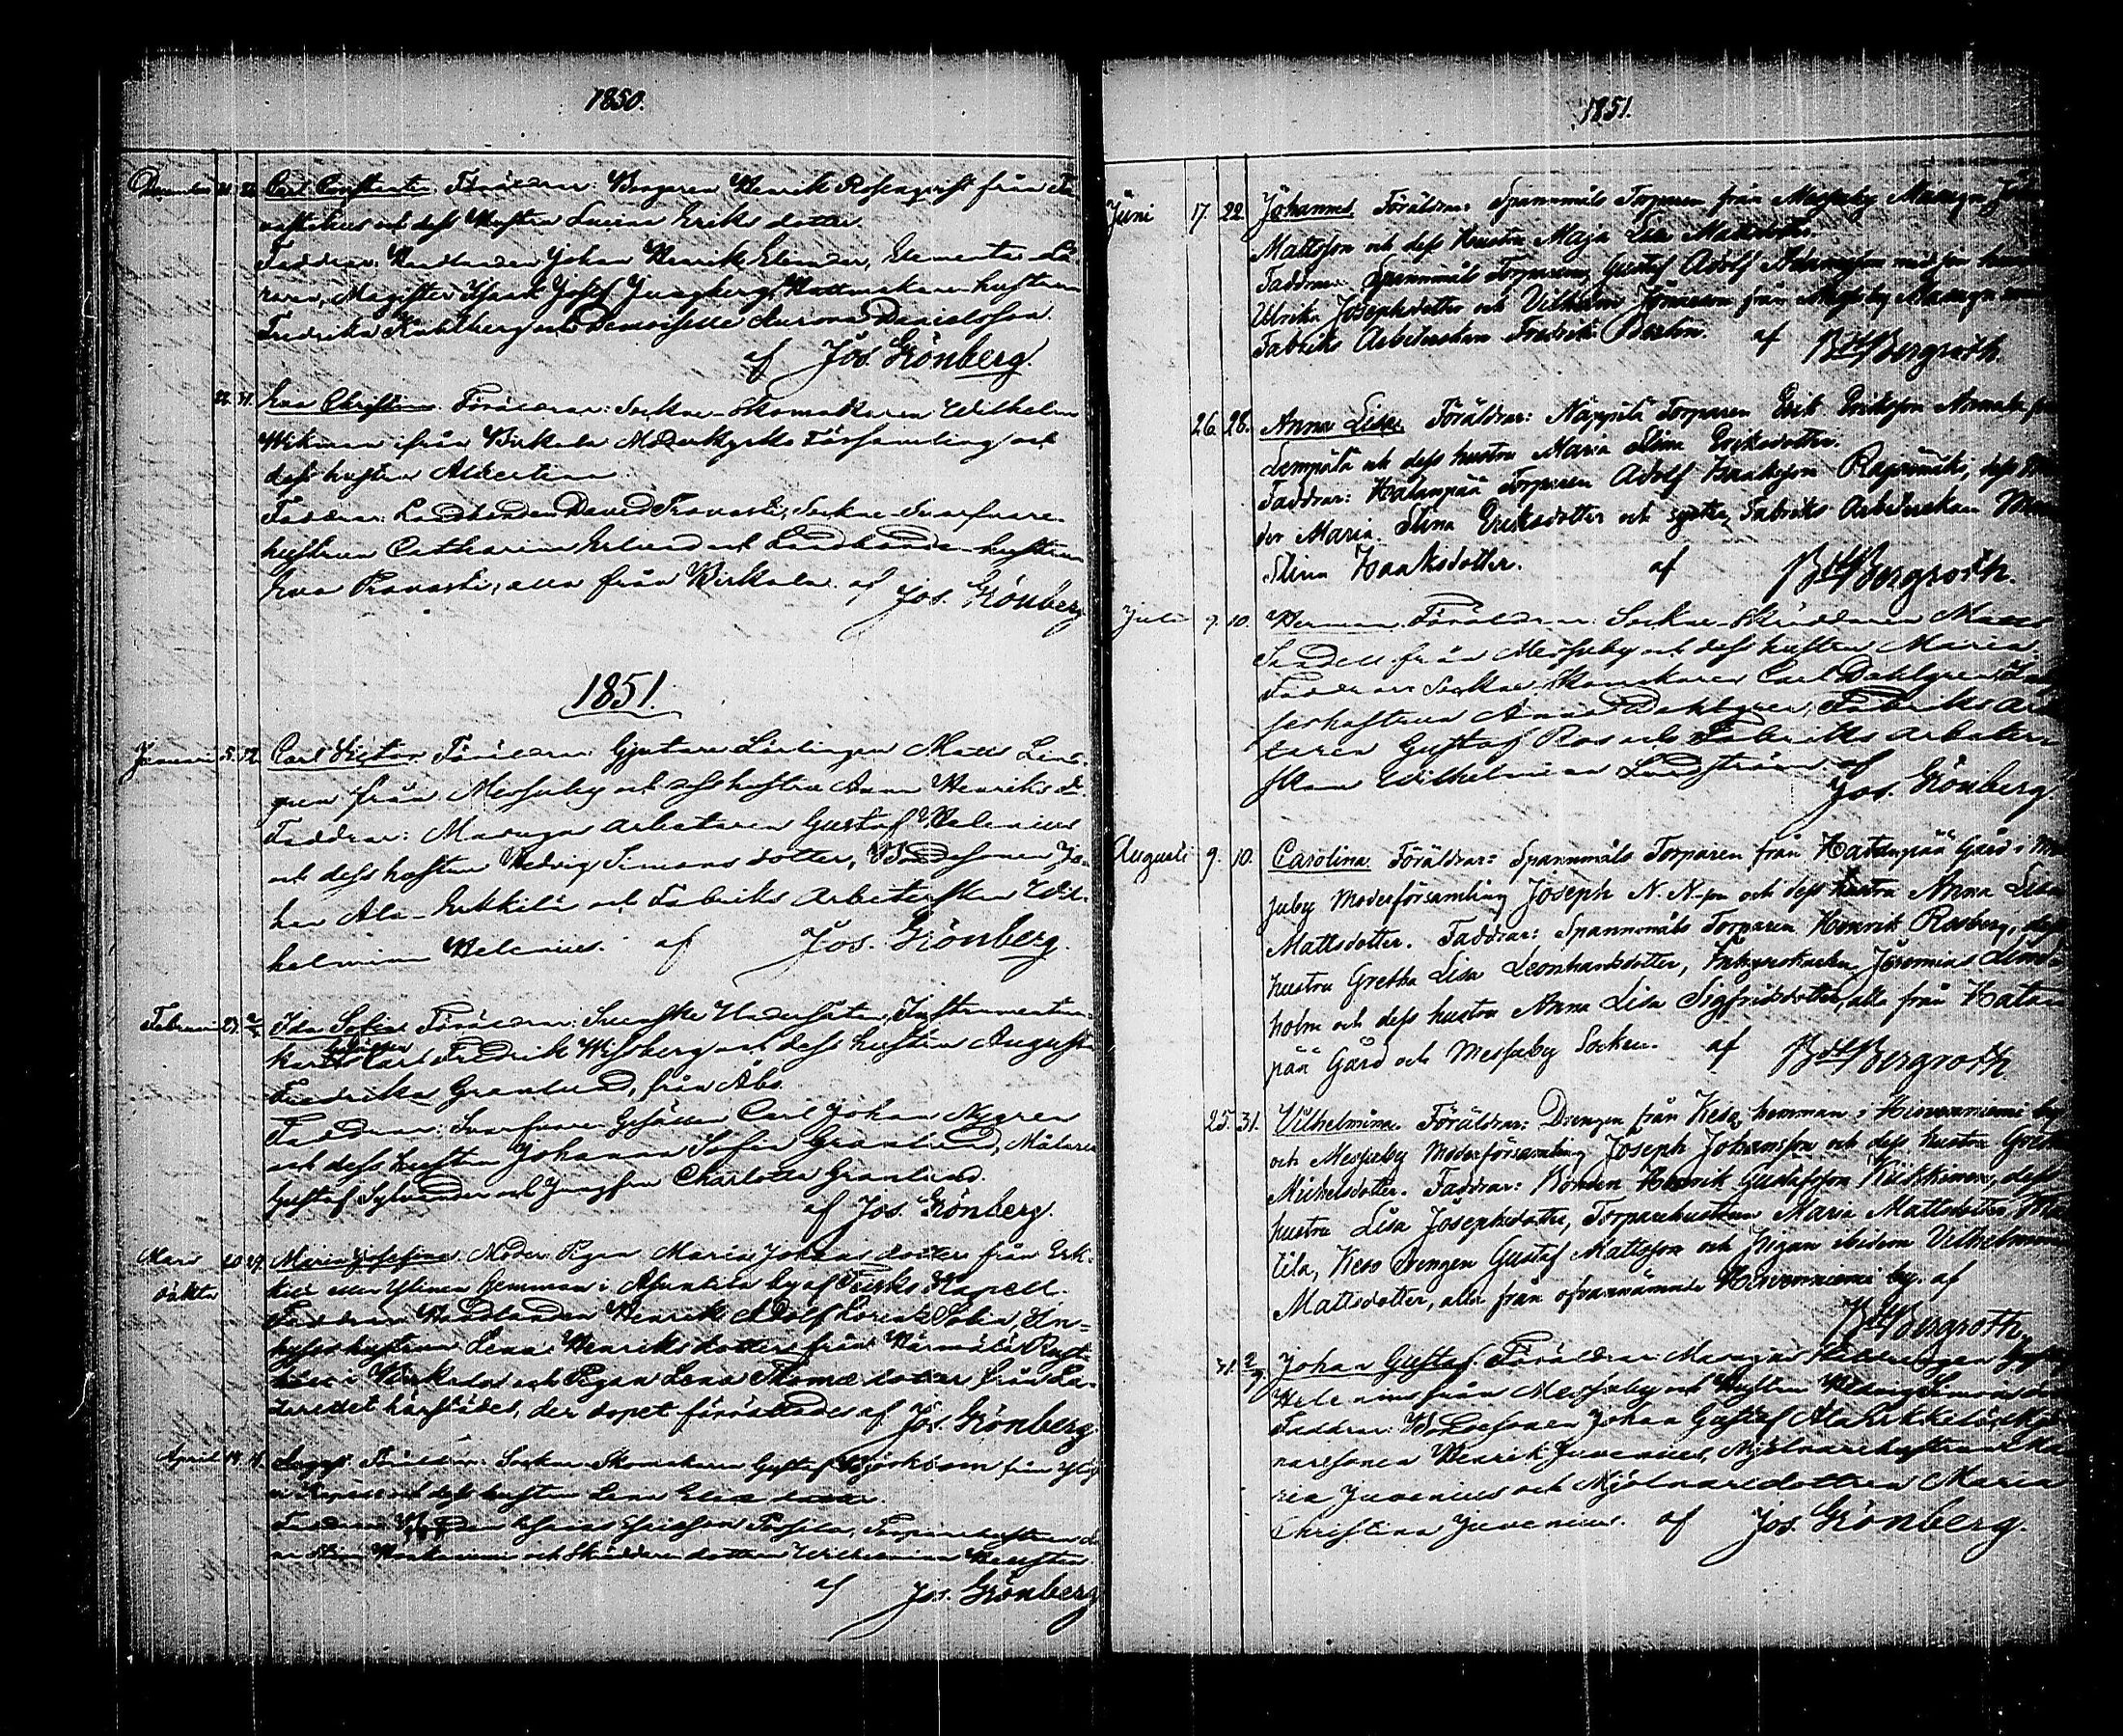 1850.
December 21. 22. Carl Constantin. Föräldrar: Borgaren Henrik Rosenqvist från Ta-
vastehus och dess Hustru Lovisa Eriks dotter.
Faddrar: Handlanden Johan Henrik Elender, Elementar Lä-
raren, Magister Isaak Josef Ljungberg, hustrun
Fredrika Kahlberg och Demoiselle Aurora Danielsson.
af Jos. Grönberg.
22. 31. Eva Christina. Föräldrar: Sockne-Skomakaren Wilhelm
Wikman ifrån Birkala Moderkyrko Församling och
dess hustru Albertina
Faddrar: Landbonden David Pravasti, Sockne-Svarfvare-
hustrun Catharina Erlund och Landbonde-hustrun
Eva Pravasti, alla från Birkala. af Jos. Grönberg
1851.
Januari 5. 12. Carl Victor. Föräldrar: Gjutare Lärlingen Matts Lind-
gren från Messuby och dess hustru Anna Henriks dr.
Faddrar: Masugns arbetaren Gustaf Helenius
och dess hustru Hedvig Simons dotter, Bondesonen Jo-
han Ala-Erkkilä och Fabriks Arbeterskan Wil-
helmina Helenius. af Jos. Grönberg.
Februari 27. 2/3 Ida Sofia. Föräldrar: Svenske Undersåten, Instrumentma-
kare Gesällen Carl Fredrik Wissberg och dess hustru Augusta
Fredrika Granlund, från Åbo.
Faddrar: Svarfvare Gesällen Carl Johan Nygren
och dess hustru Johanna Sofia Granlund, Målaren
Gustaf Sylvander och Jungfrun Charlotta Granlund.
af Jos. Grönberg.
Mars 20. 27. Maria Josefina. Moder: Pigan Maria Johans dotter från Erk-
oäkta kilä eller Ylinen Hemman i by af Teisko Kapell.
Faddrar: Handlanden Henrik Adolf Lorentz Solin, In-
hyses hustrun Lena Henriks dotter från Härmälä Rust-
håll i Birkala och Pigan Lena Thomæ dotter från La-
zarettet härstädes, der dopet förrättades af Jos. Grönberg
April 14. Föräldrar: Sockne Skomakaren Gustaf Björkbom från
och dess hustru Lena Elias dotter.
Faddrar: Torparehustrun
och Skräddare dottren Wilhelmina
af Jos. Grönberg
1851.
Juni 17. 22. Johannes. Föräldrar: Spannmåls Torparen från Messuby Masugn Johan
Mattsson och dess hustru Maja Lisa Mattsdotter.
Faddrar: Spannmåls Torparen Gustaf Adolf med sin hustru
Ulrika Josephsdotter och Vilhelm från Messuby Masugn samt
Fabriks Arbeterskan Fredrika Berlin. af BHBergroth.
26. 28. Anna Lisa. Föräldrar: Näppilä Torparen Erik Eriksson från
Lempälä och dess hustru Maria Stina Eriksdotter.
Faddrar: Hatanpää Torparen Adolf Isaaksson dess Mo-
der Maria Stina Eriksdotter och syster, Fabriks Arbeterskan Maria
Stina Isaaksdotter. af BHBergroth.
Juli 9. 10. Herman. Föräldrar: Sockne-Skräddaren Matts
Sandell från Messuby och dess hustru Maria.
Faddrar: Sockne Skomakaren Carl Dahlgren, In-
hyseshustrun Anna Dahlgren, Fabriks Arbe-
taren Gustaf Ros och Fabriks Arbeter-
skan Wilhelmina Lundström af
Jos. Grönberg.
Augusti 9. 10. Carolina. Föräldrar: Spannmåls Torparen från Hatanpää Gård i Mes-
suby Moderförsamling Joseph N.N-son och dess hustru Anna Lisa
Mattsdotter. Faddrar: Spannmåls Torparen Henrik Rosberg, dess
hustru Gretha Lisa Leonhardsdotter, Inhyseskarlen Jeremias Lind-
holm och dess hustru Anna Lisa Sigfridsdotter, alla från Hatan-
pää Gård och Messuby Socken. af BHBergroth.
25. 31. Vilhelmina. Föräldrar: Drengen från Keso hemman i Hirvenniemi by
och Messuby Moderförsamling Joseph Johansson och dess hustru Greta
Michelsdotter. Faddrar: Bonden Henrik Gustafsson Kikkinen, dess
hustru Lisa Josephsdotter, Torparehustrun Maria Mattsdotter
tila, Keso Drengen Gustaf Mattsson och Pigan ibidem Vilhelmina
Mattsdotter, alla från ofvannämnde Hirvenniemi by. af
BHBergroth.
31. 2/9. Johan Gustaf. Föräldrar: Masugns
Helenius från Messuby och Hustru Hedvig Simons dotter
Faddrar: Bondesonen Johan Gustaf Ala-Erkkilä, Mjöl-
naresonen Henrik Juvenius, Mjölnarehustrun Ma-
ria Juvenius och Mjölnaredottren Maria
Christina Juvenius. af Jos. Grönberg.